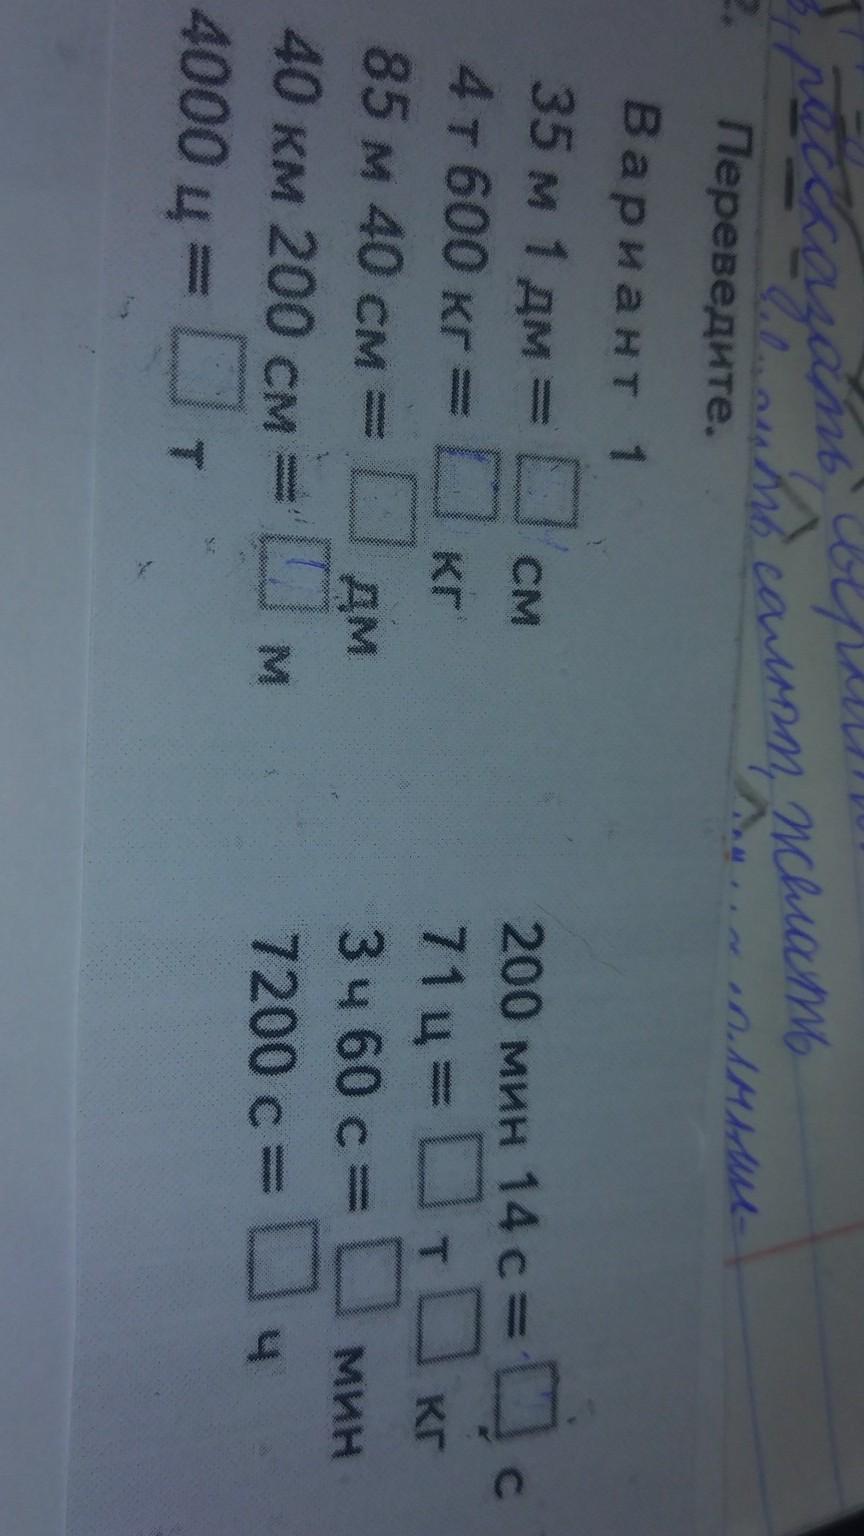 рассказать,
салют, желать
2. Переведите.
Вариант 1
35 м 1 дм = □ см
4 т 600 кг = □ кг
85 м 40 см = □ дм
40 км 200 см = □ м
4000 ц = □ т
200 мин 14 с = □ с
71 ц = □ т □ кг
3 ч 60 с = □ мин
7200 с = □ ч